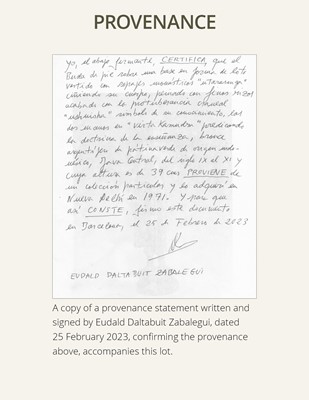 PROVENANCE
Yo, el abajo firmante, CERTIFICA, que el
Buda de pie sobre una base en forma de loto
vestido con ropajes monásticos
cubriendo su cuerpo, peinado con finos rizos
acabado con la protuberancia craneal
"ushnisha" símbolo de su conocimiento, las
dos manos en "Vitarka mudra" predicando
la doctrina de la enseñanza, bronce
de origen indo-
Java Central, del siglo IX al XI y
cuya altura es de 39 cms PROVIENE de
una colección particular y se adquirió en
Nueva Delhi en 1971. Y para que
así CONSTE, firmo este documento
en Barcelona, el 25 de Febrero de 2023
EUDALD DALTABUIT ZABALEGUI
A copy of a provenance statement written and
signed by Eudald Daltabuit Zabalegui, dated
25 February 2023, confirming the provenance
above, accompanies this lot.